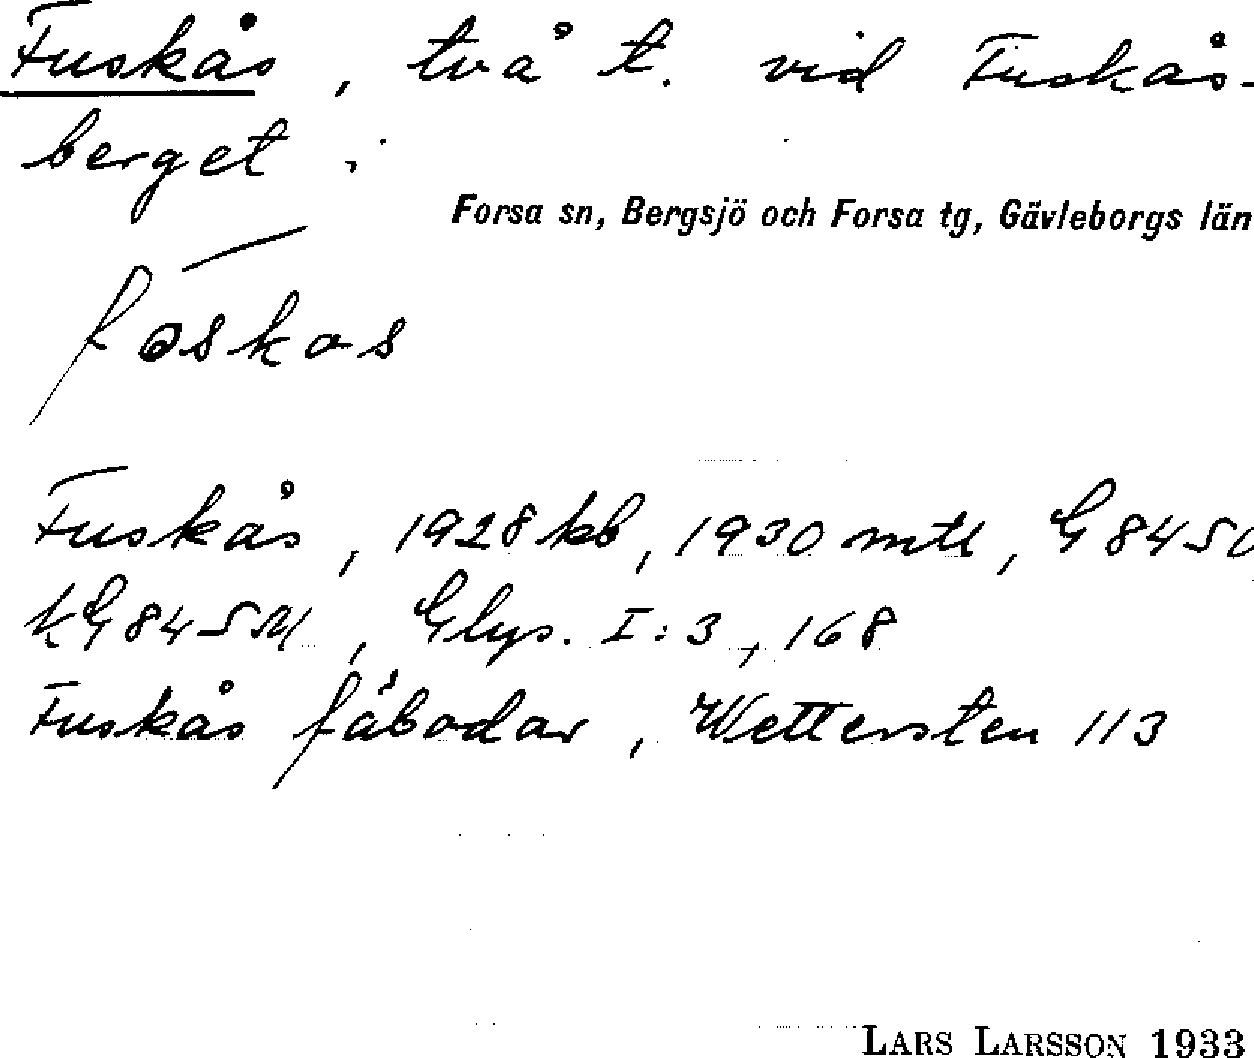 Fuskås, två t. vid Fuskås-
berget i
Forsa sn, Bergsjö och Forsa tg, Gävleborgs län
Fuskås, 1928 kb, 1930 mtl, G 8450
KG 845
, Glys. I:3, 168
Fuskås fäbodar, Wettersten 113
LARS LARSSON 1933